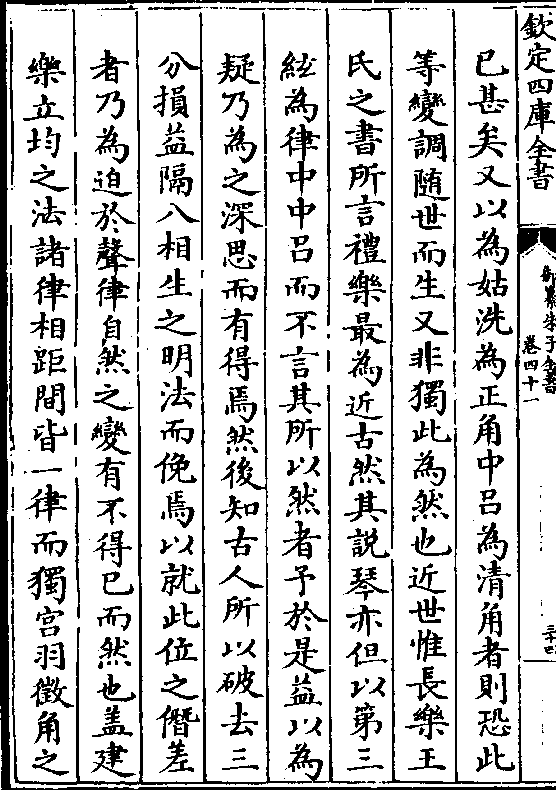 欽定四庫全書
御纂朱子全書
卷四十一
三十四
已甚矣又以為姑洗為正角中呂為清角者則恐此
等變調随世而生又非獨此為然也近世惟長樂王
氏之書所言禮樂最為近古然其説琴亦但以第三
絃為律中中呂而不言其所以然者予於是益以為
疑乃為之深思而有得焉然後知古人所以破去三
分損益隔八相生之明法而俛焉以就此位之僭差
者乃為迫於聲律自然之變有不得已而然也盖建
樂立均之法諸律相距間皆一律而獨宮羽徵角之